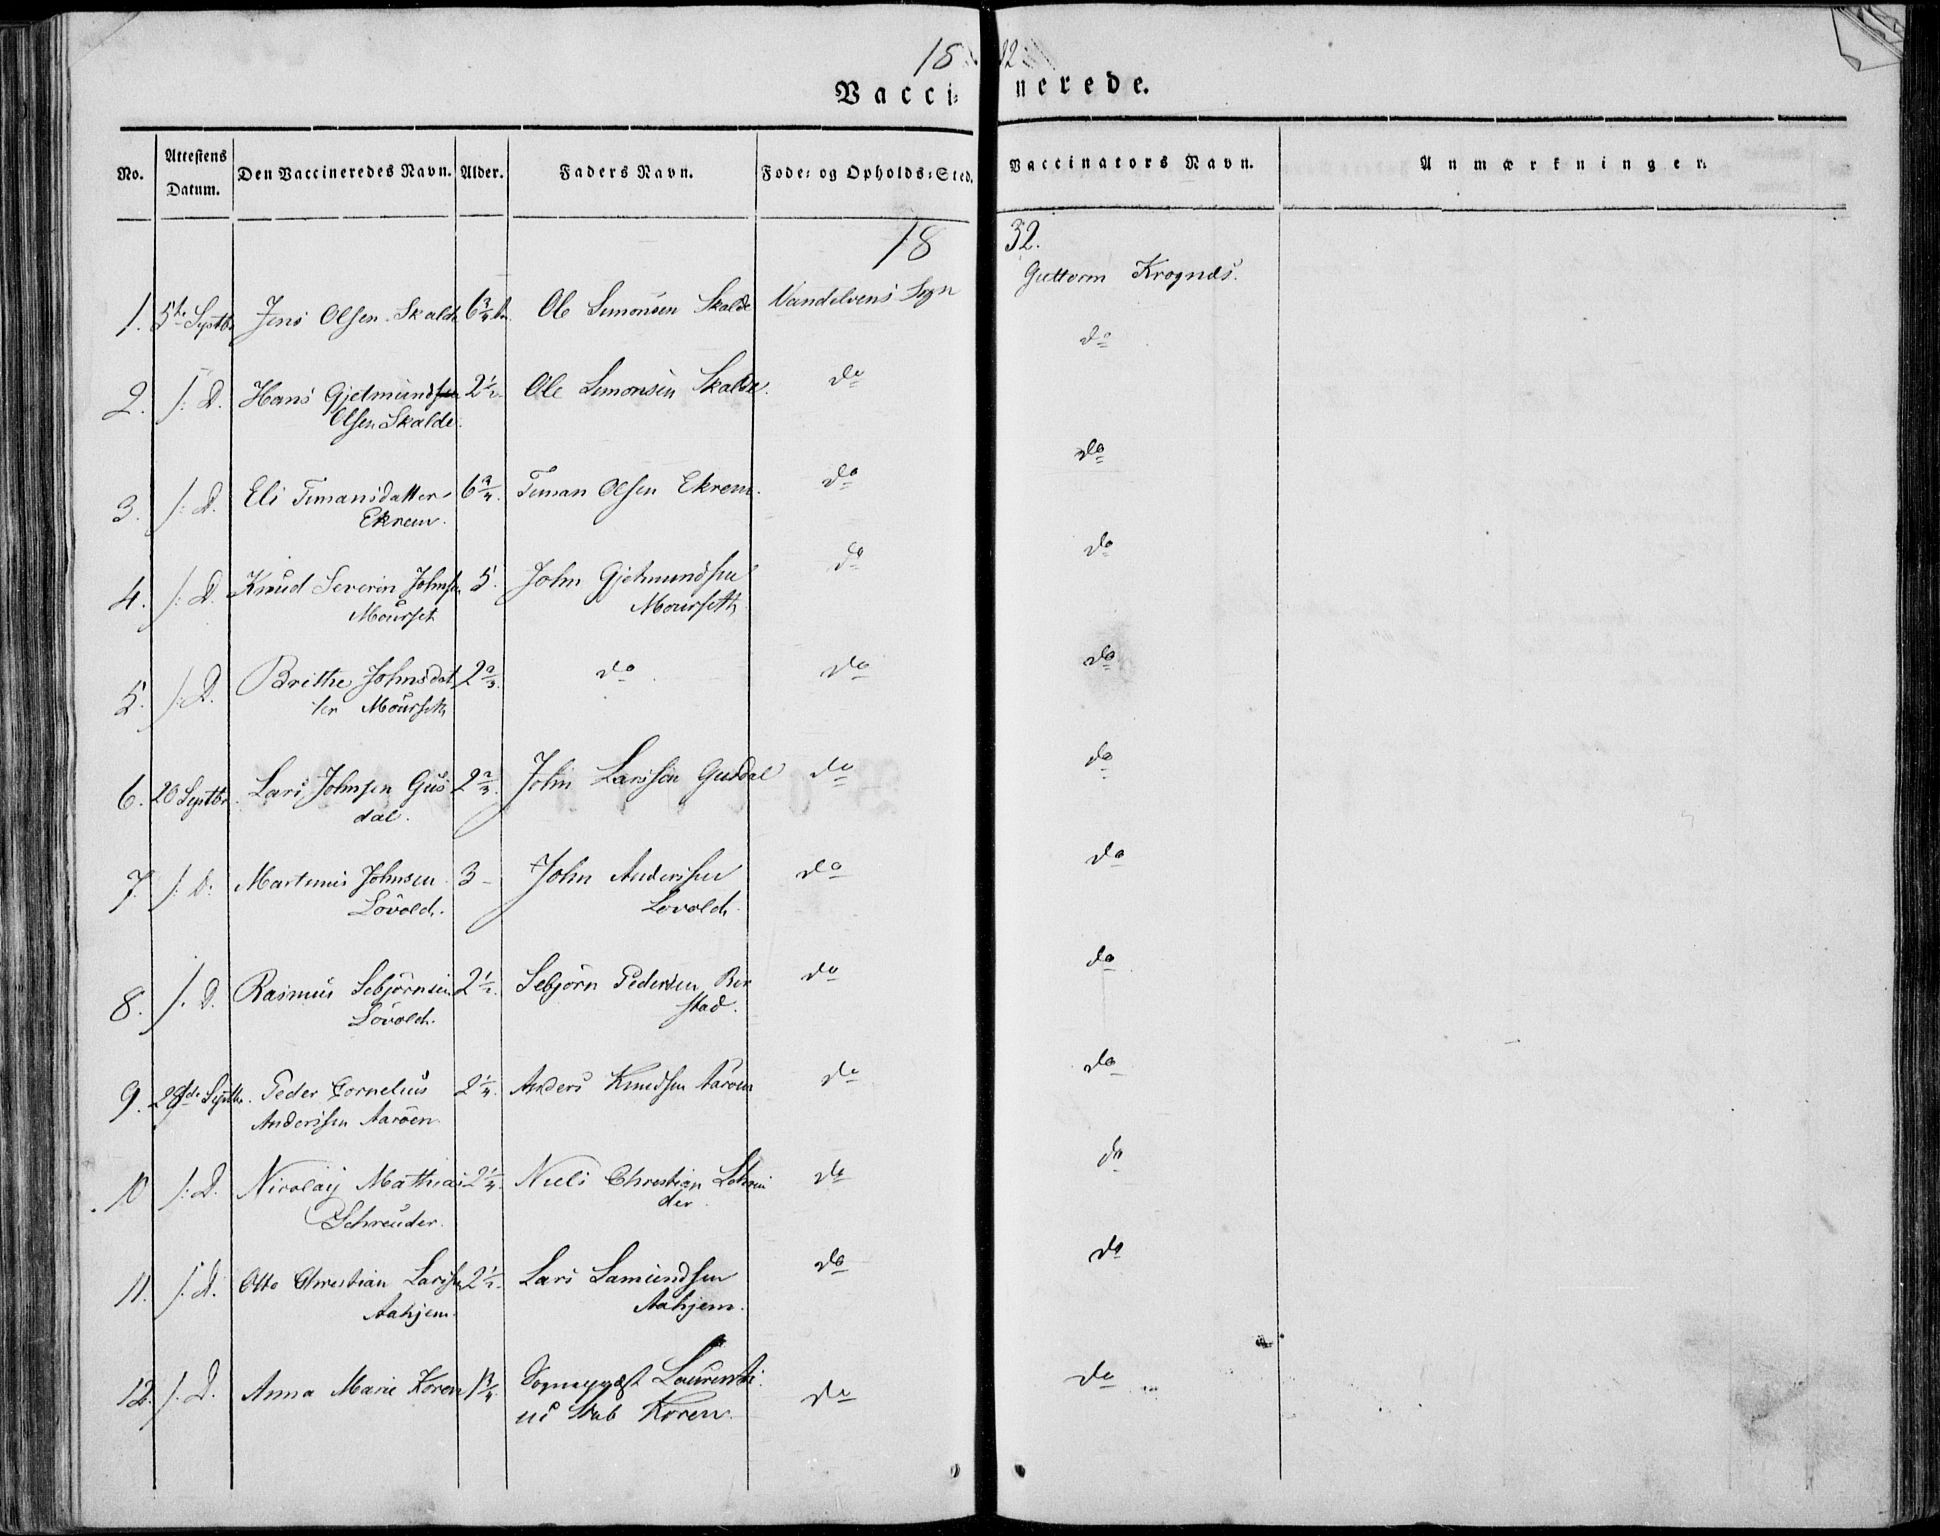 18 32
Vacci- nerede.
No. Attestens Datum. Den Vaccineredes Navn. Alder. Faders Navn. Føde- og Opholds-Sted. Vaccinators Navn. Anmærkninger.
18 32.
1. 5te Septbr Jens Olsen Skalde 6 3/4 Ole Simonsen Skalde Vandelvens Sogn Guttorm Krognæs.
do
2. /: D. Hans Gjetmundsen 2 1/2 Ole Simonsen Skalde. do
Olsen Skalde.
do
3. /: D. Eli Timansdatter 6 3/4. Timan Olsen Ekrem. do
Ekrem.
do
4. /: D. Knud Severin Johnsen 5. John Gjetmundsen do
Mourset Mourseth
5. /: D. Brithe Johnsdat 2 2/3. do do do
ter Mourseth
6. 20 Septbr. Lars Johnsen Gus 2 John Larssen Gusdal do do
dal.
7. /: D. Martinus Johnsen 3 - John Anderssen do do
Lövold. Lovold.
8. /: D. Rasmus Sebjörnsen 2 1/2. Sebjörn Pedersen do do
Lövold. stad.
9. 28de Septbr. Peder Cornelius 2 1/4. Anders Knudsen Aaröen do do
Anderssen Aaröen
10 /: D. Nicolaij Mathias 2 1/4. Niels Christian do do
Schreuder. der.
11. /: D. Otto Christian Larssen 2 1/2. Lars Samundsen do do
Aahjem. Aahjem.
12. /: D. Anna Marie Koren 1 3/4. Sognepræst Laurenti do do
us Stub Koren.